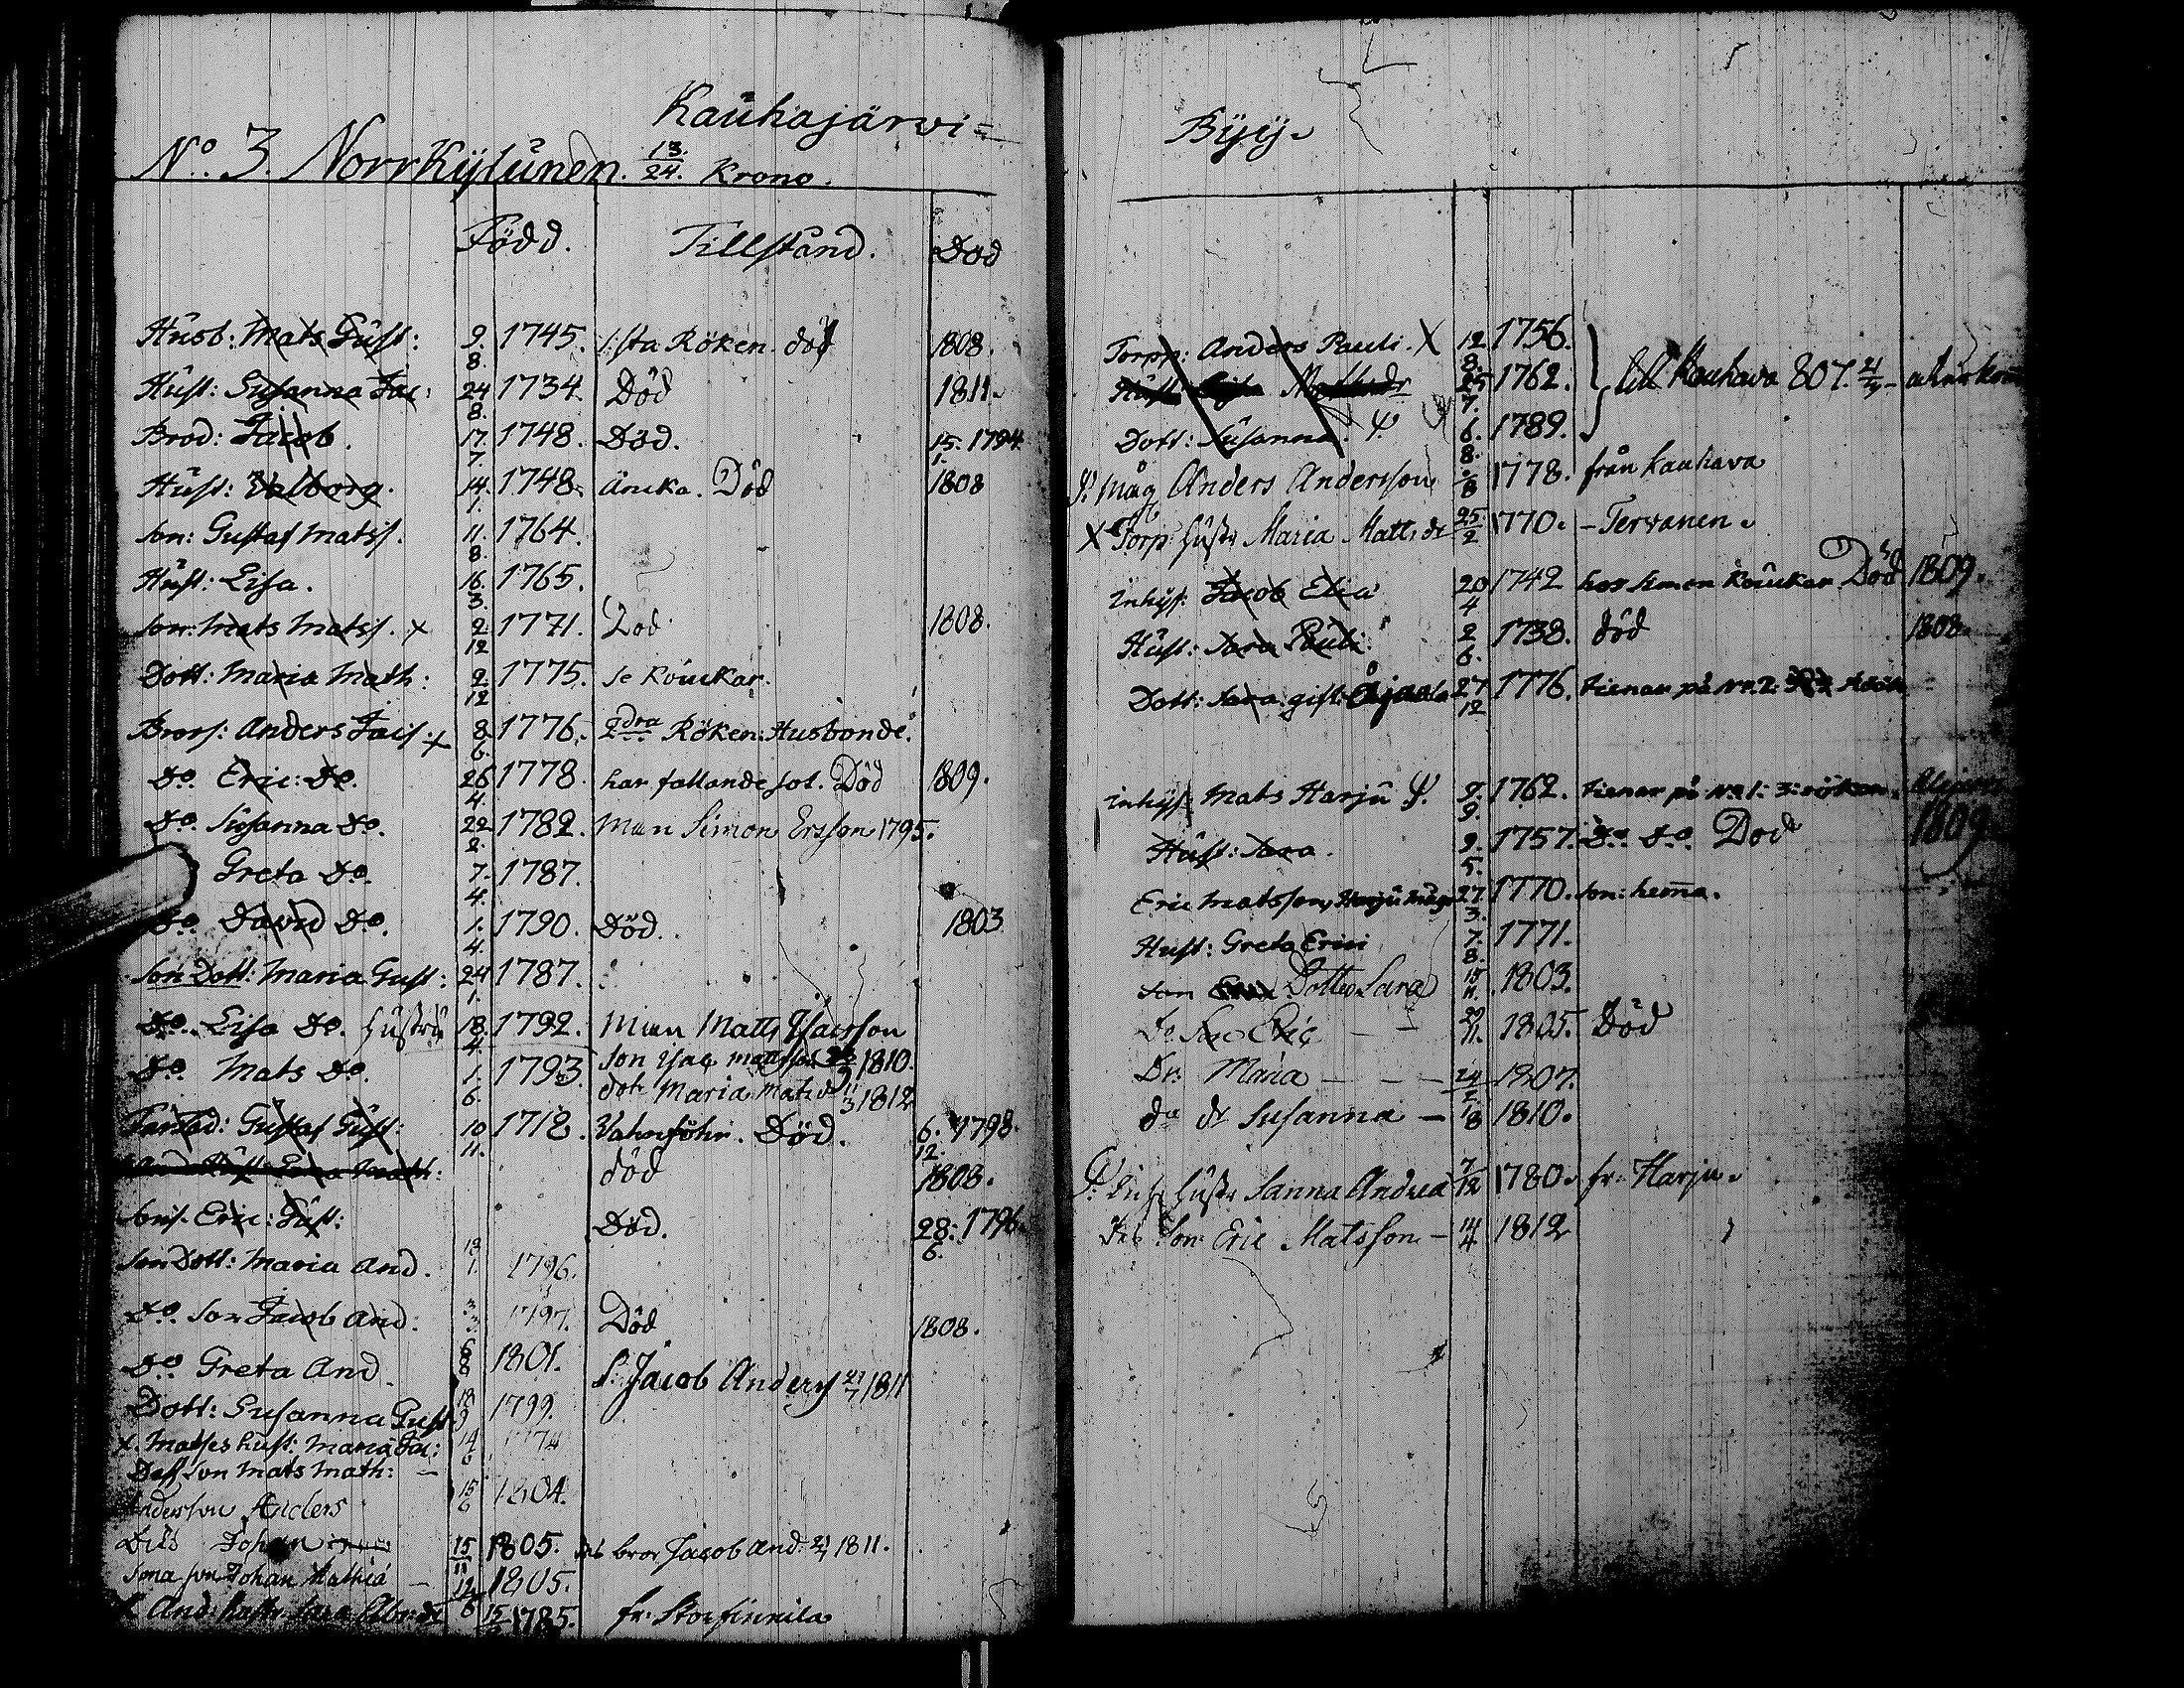 Kauhajärwi=
No. 3. Norrkylunen. 13/24. Krono.
Född. Tillstånd. Död
Husb: Mats Gust: 9. 8. 1745. 1:sta Röken. död 1808.
Hust: Susanna Jac: 24 8. 1734 Död 1811.
Brod: Jacob. 17. 7. 1748. Död. 15. 1. 1794
Hust: Valborg. 14. 1. 1748. Äncka. Död 1808
Son: Gustaf Matss. 11. 8. 1764.
Hust: Lisa. 16. 3. 1765.
Son: Mats Matss. x 2 12 1771. Död 1808.
Dott: Maria Math: 2 12 1775. se Kouckar.
Brors: Anders Jacs. x 8 6. 1776. 2dra Röken: Husbonde.
Do. Eric: Do. 26 4. 1778. har fallande sot. Död 1809.
Do. Susanna Do. 22 2. 1782. Man Simon Ersson 1795.
Greta Do. 7. 4. 1787.
Do. David Do. 1. 4. 1790. Död. 1803
Son Dott: Maria Gust: 24 1. 1787.
Do. Lisa Do. Hustru 18. 4. 1792. Man Matts Isacsson
Son Isac Mattsson 1810.
Do. Mats Do. 1. 6. 1793.
dotr Maria Mats dr 11/3 1812
Farfad: Gustaf Gust: 10 11. 1718. Död. 6. 12. 1798.
död 1808.
Sons. Eric: Gust: Död. 28. 6. 1796
Son Dott: Maria And. 18 1. 1796.
Do. Son Jacob And. 3 3. 1797. Död 1808.
Do. Greta And. 6 8 1801.
S: Jacob Anders 1811
Dott: Susanna Gust 18 9 1799.
x. Matses hust: Maria Jac: 14 6 1774
Dess Son Mats Math: —
Anderson Anders 15 6 1804.
Dito Johan 15 11 1805. des bror Jacob And: 1811.
Sona son Johan Mathiæ — 12 8 1805.
x And: hustr 15 1785. fr: Storfinnila
Byy.
Torpp: Anders Pauli. X 12 8. 1756.
Hust: Mathsdr 25 7. 1762. till Kauhava 807. återkom
Dott: Susanna. 6. 8. 1789.
Måg Anders Andersson 1778. från Kauhava
X Torp: hustr Maria Matts dr 25 2 1770. – Tervanen.
Inhys: Jacob Elia 20 4 1742 hos Simon Kouckar Död 1809.
Hust: Sara Pauli 2 6. 1738. död 1808.
Dott: Sara. gift. 27 12 1776. tienar på No. 2.
Inhys: Mats Harju 9. 9. 1762. tienar på No 1: 3: röken.
Hust: Sara. 9. 5. 1757. Do. Do. Död 1809
Eric Matsson, Harju måg 27 3. 1770. Son: hem̄a.
Hust: Greta Erici 7. 8. 1771.
Son Dotter Sara 15 11. 1803.
Do Son Eric – – 29 11. 1805. Död
Dr: Maria – – – 24 2 1807.
do dr Susanna – 1/8 1810.
Inhs hustr Sanna Andreæ 7 12 1780. fr. Harju.
Des Son: Eric Matsson – 14 4 1812